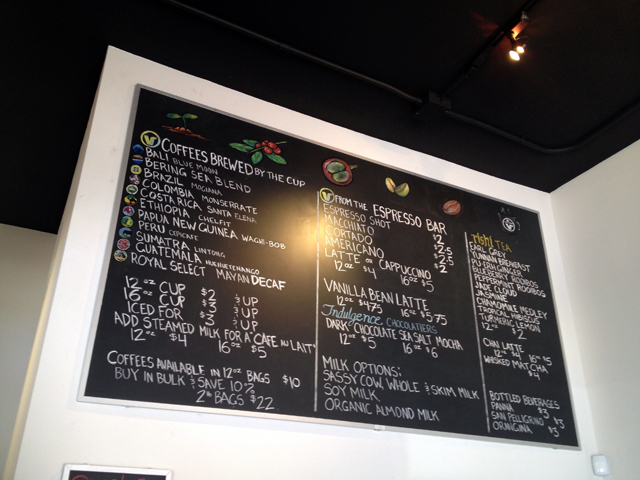 COFFEES BREWED BY THE CUP
BALI BLUE MOON
BERING SEA BLEND
BRAZIL MOGIANA
COLOMBIA MONSERRATE
COSTA RICA SANTA ELENA
ETHIOPIA CHELFIT
PAPUA NEW GUINEA WAGHI-BOB
PERU CEPICAFE
SUMATRA LINTONG
GUATEMALA HUEHUETENANGO
ROYAL SELECT MAYAN DECAF
12oz CUP $2 & UP
16oz CUP $2 & UP
ICED FOR $3 & UP
ADD STEAMED MILK FOR A "CAFE AU LAIT"
12oz $4 16oz $5
COFFEES AVAILABLE IN 12oz BAGS $10
BUY IN BULK & SAVE 10%
2lb BAGS $22
FROM THE ESPRESSO BAR
ESPRESSO SHOT $2
MACCHIATO $2.5
CORTADO $2.5
AMERICANO $2
LATTE OR CAPPUCCINO
12oz $4 16oz $5
VANILLA BEAN LATTE
12oz $4.75 16oz $5.75
Indulgence CHOCOLATIERS
DARK CHOCOLATE SEA SALT MOCHA
12oz $5 16oz $6
MILK OPTIONS:
SASSY COW WHOLE & SKIM MILK
SOY MILK
ORGANIC ALMOND MILK
rishi TEA
EARL GREY
YUNNAN BREAKFAST
PU-ERH GINGER
BLUEBERRY ROOIBOS
PEPPERMINT ROOIBOS
JADE CLOUD
JASMINE
CHAMOMILE MEDLEY
TROPICAL HIBISCUS
TURMERIC LEMON
12oz $2
CHAI LATTE
12oz $4 16oz $5
WHISKED MATCHA
$4
BOTTLED BEVERAGES
PANNA $3
SAN PELLEGRINO $3
ORANGINA $3